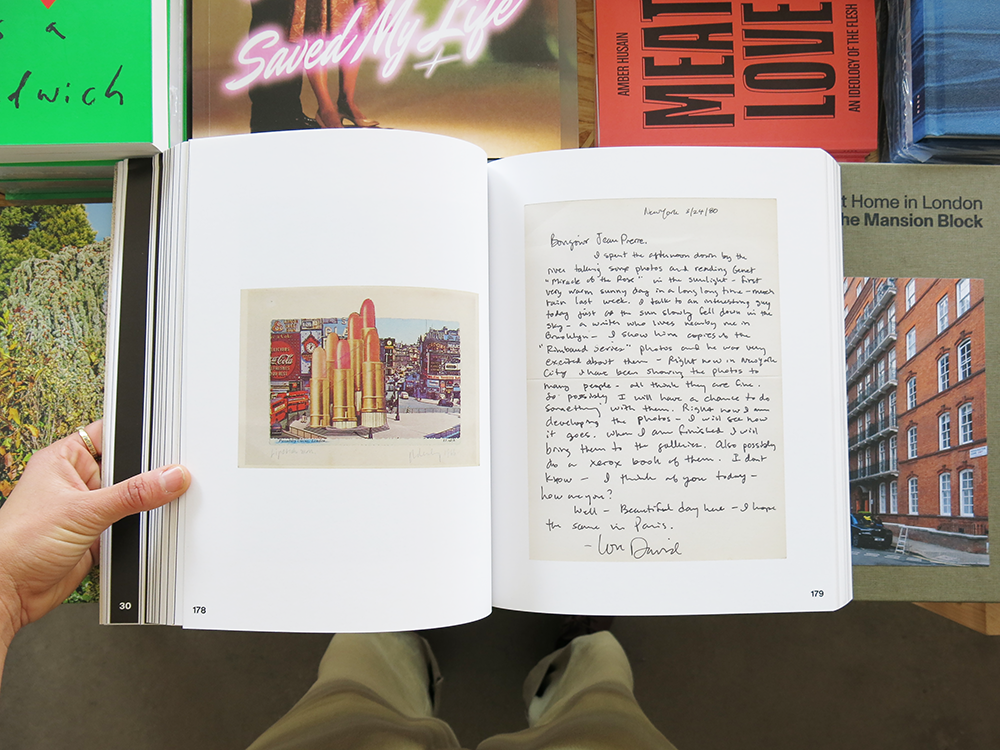 s a
dwich
Saved My Life
+
AMBER HUSAIN
MEAT
LOVE
AN IDEOLOGY OF THE FLESH
t Home in London
he Mansion Block
Coca-Cola
30
178
New York 6/24/80
Bonjour Jean Pierre.
I spent the afternoon down by the
river taking some photos and reading Genet
"Miracle of the Rose" in the sunlight - first
very warm sunny day in a long long time - much
rain last week. I talk to an interesting guy
today just as the sun slowly fell down in the
sky - a waiter who lives nearby me in
Brooklyn - I show him copies of the
"Rimbaud Series" photos and he was very
excited about them - Right now in New York
City I have been showing the photos to
many people - all think they are fine.
So possibly I will have a chance to do
something with them. Right now I am
developing the photos - I will see how
it goes. When I am finished I will
bring them to the galleries. Also possibly
do a xerox book of them. I dont
know - I think of you today -
how are you?
Well - Beautiful day here - I hope
the same in Paris.
- Love David
179